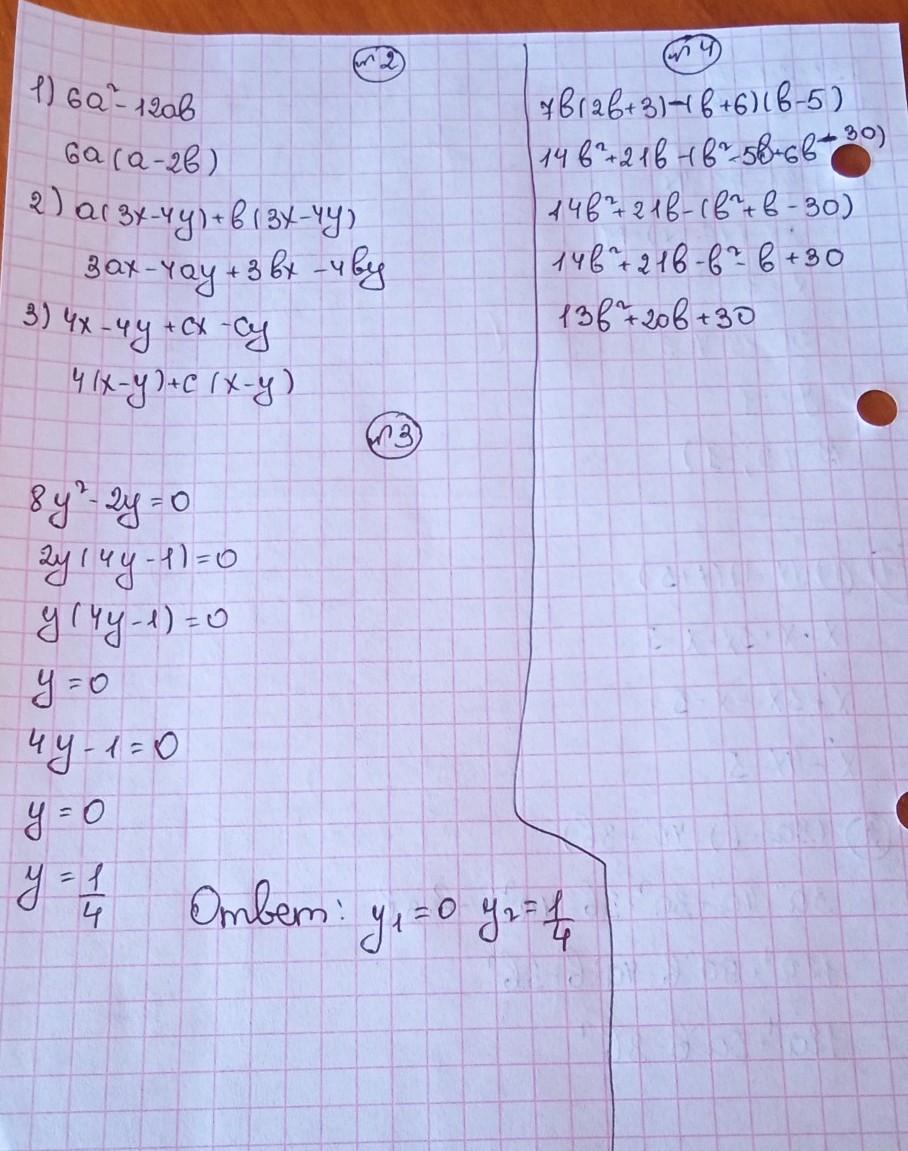 №2
1) 6a² - 12ab
6a(a-2b)
2) a(3x-4y)+b(3x-4y)
3ax-4ay+3bx-4by
3) 4x-4y+cx-cy
4(x-y)+c(x-y)
№3
8y²-2y=0
2y(4y-1)=0
y(4y-1)=0
y=0
4y-1=0
y=0
y=1/4
Ответ: y₁=0 y₂=1/4
№4
7b(2b+3)-(b+6)(b-5)
14b²+21b-(b²-5b+6b-30)
14b²+21b-(b²+b-30)
14b²+21b-b²-b+30
13b²+20b+30